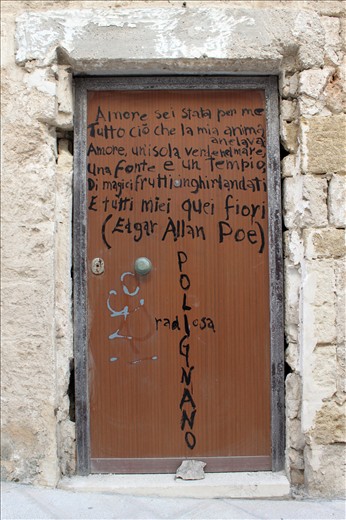 Amore sei stata per me
Tutto ciò che la mia anima
anelava
Amore, un isola verde nel mare,
una fonte e un tempio,
Di magici frutti inghirlandati
E tutti miei quei fiori
(Edgar Allan Poe)
POLIGNANO
radiosa